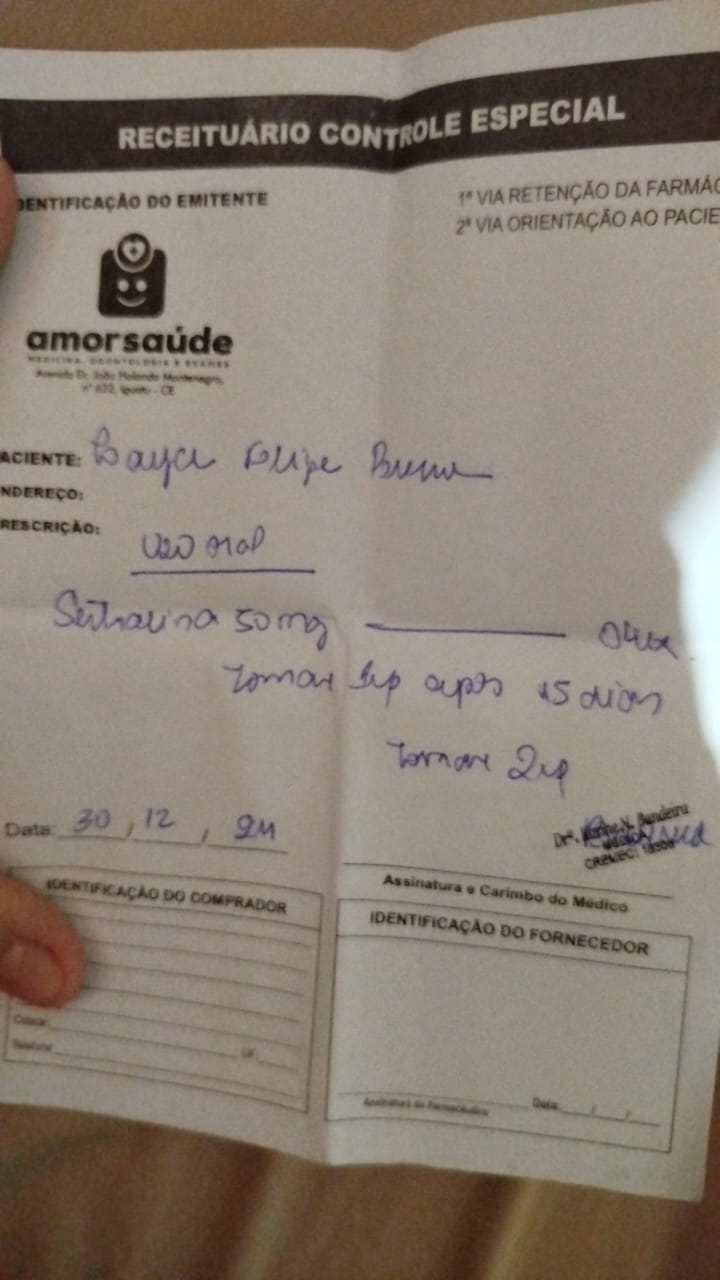 RECEITUÁRIO CONTROLE ESPECIAL
DENTIFICAÇÃO DO EMITENTE
1ª VIA RETENÇÃO DA FARMÁC
2ª VIA ORIENTAÇÃO AO PACIE
amorsaúde
MEDICINA, ODONTOLOGIA E EXAMES
Avenida Dr. João Holanda Montenegro,
nº 622, Iguatu - CE
ACIENTE: Felipe
NDEREÇO:
RESCRIÇÃO:
uso oral
Sertralina 50mg
Tomar 1cp após 15 dias
Tomar 2cp
Data: 30, 12, 24
Drª. Bandeira
MÉDICA
CREMEC:
Assinatura e Carimbo do Médico
IDENTIFICAÇÃO DO COMPRADOR
Cidade:
Telefone: UF
IDENTIFICAÇÃO DO FORNECEDOR
Assinatura do Farmacêutico Data: / /